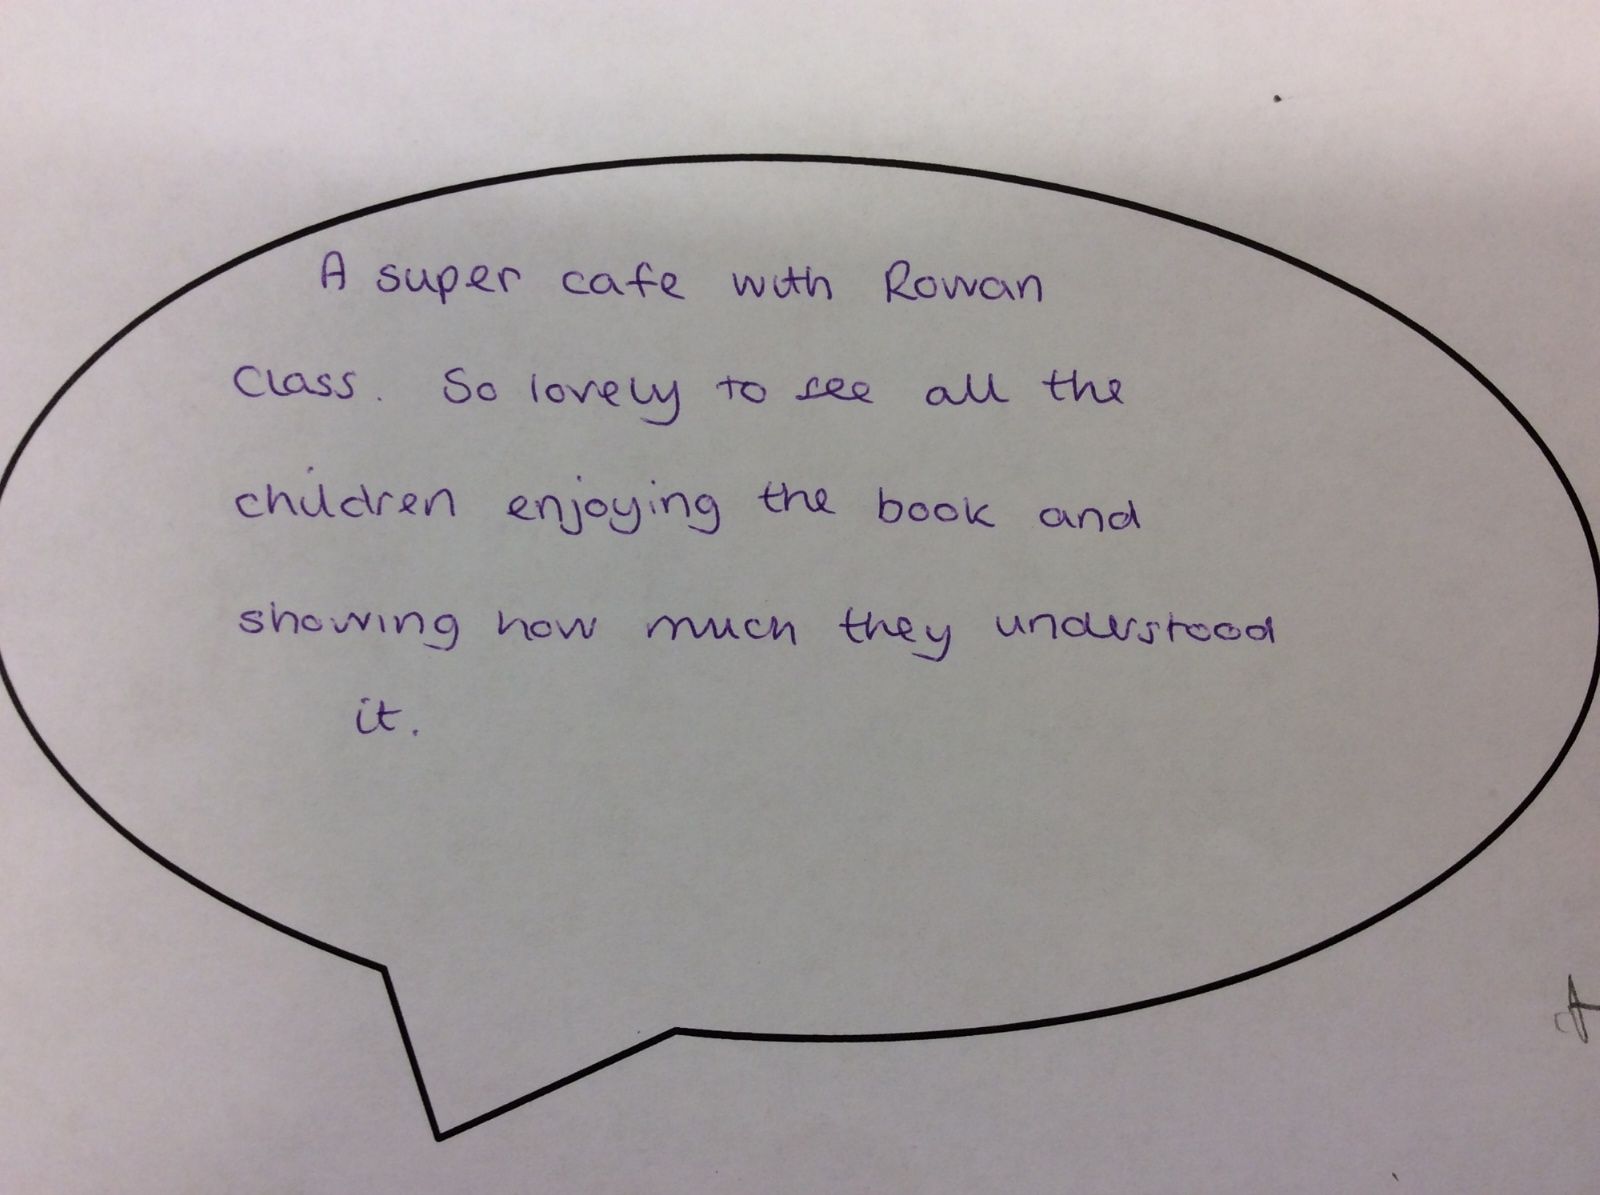 A super cafe with Rowan
Class. So lovely to see all the
children enjoying the book and
showing how much they understood
it.